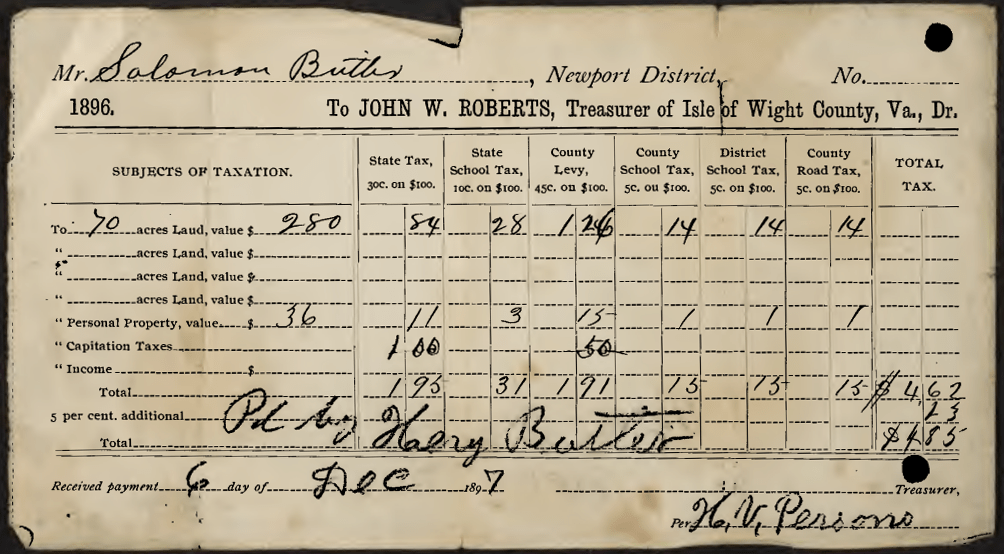 Mr. Solomon Butler, Newport District, No.
1896. To JOHN W. ROBERTS, Treasurer of Isle of Wight County, Va., Dr.
SUBJECTS OF TAXATION. State Tax, 30c. on $100. State School Tax, 10c. on $100. County Levy, 45c. on $100. County School Tax, 5c. ou $100. District School Tax, 5c. on $100. County Road Tax, 5c. on $100. TOTAL TAX.
To 70 acres Laud, value $ 280 84 28 1 26 14 14 14
" acres Land, value $
" acres Land, value $
" acres Land, value $
" Personal Property, value $ 36 11 3 15 1 1 1
" Capitation Taxes 1 00 50
" Income $
Total 1 95 31 1 91 15 15 15 $ 4,62
5 per cent. additional 23
Pd by Henry Butler
Total $ 485
Received payment 6 day of Dec 1897 Treasurer,
Per H. V. Persons